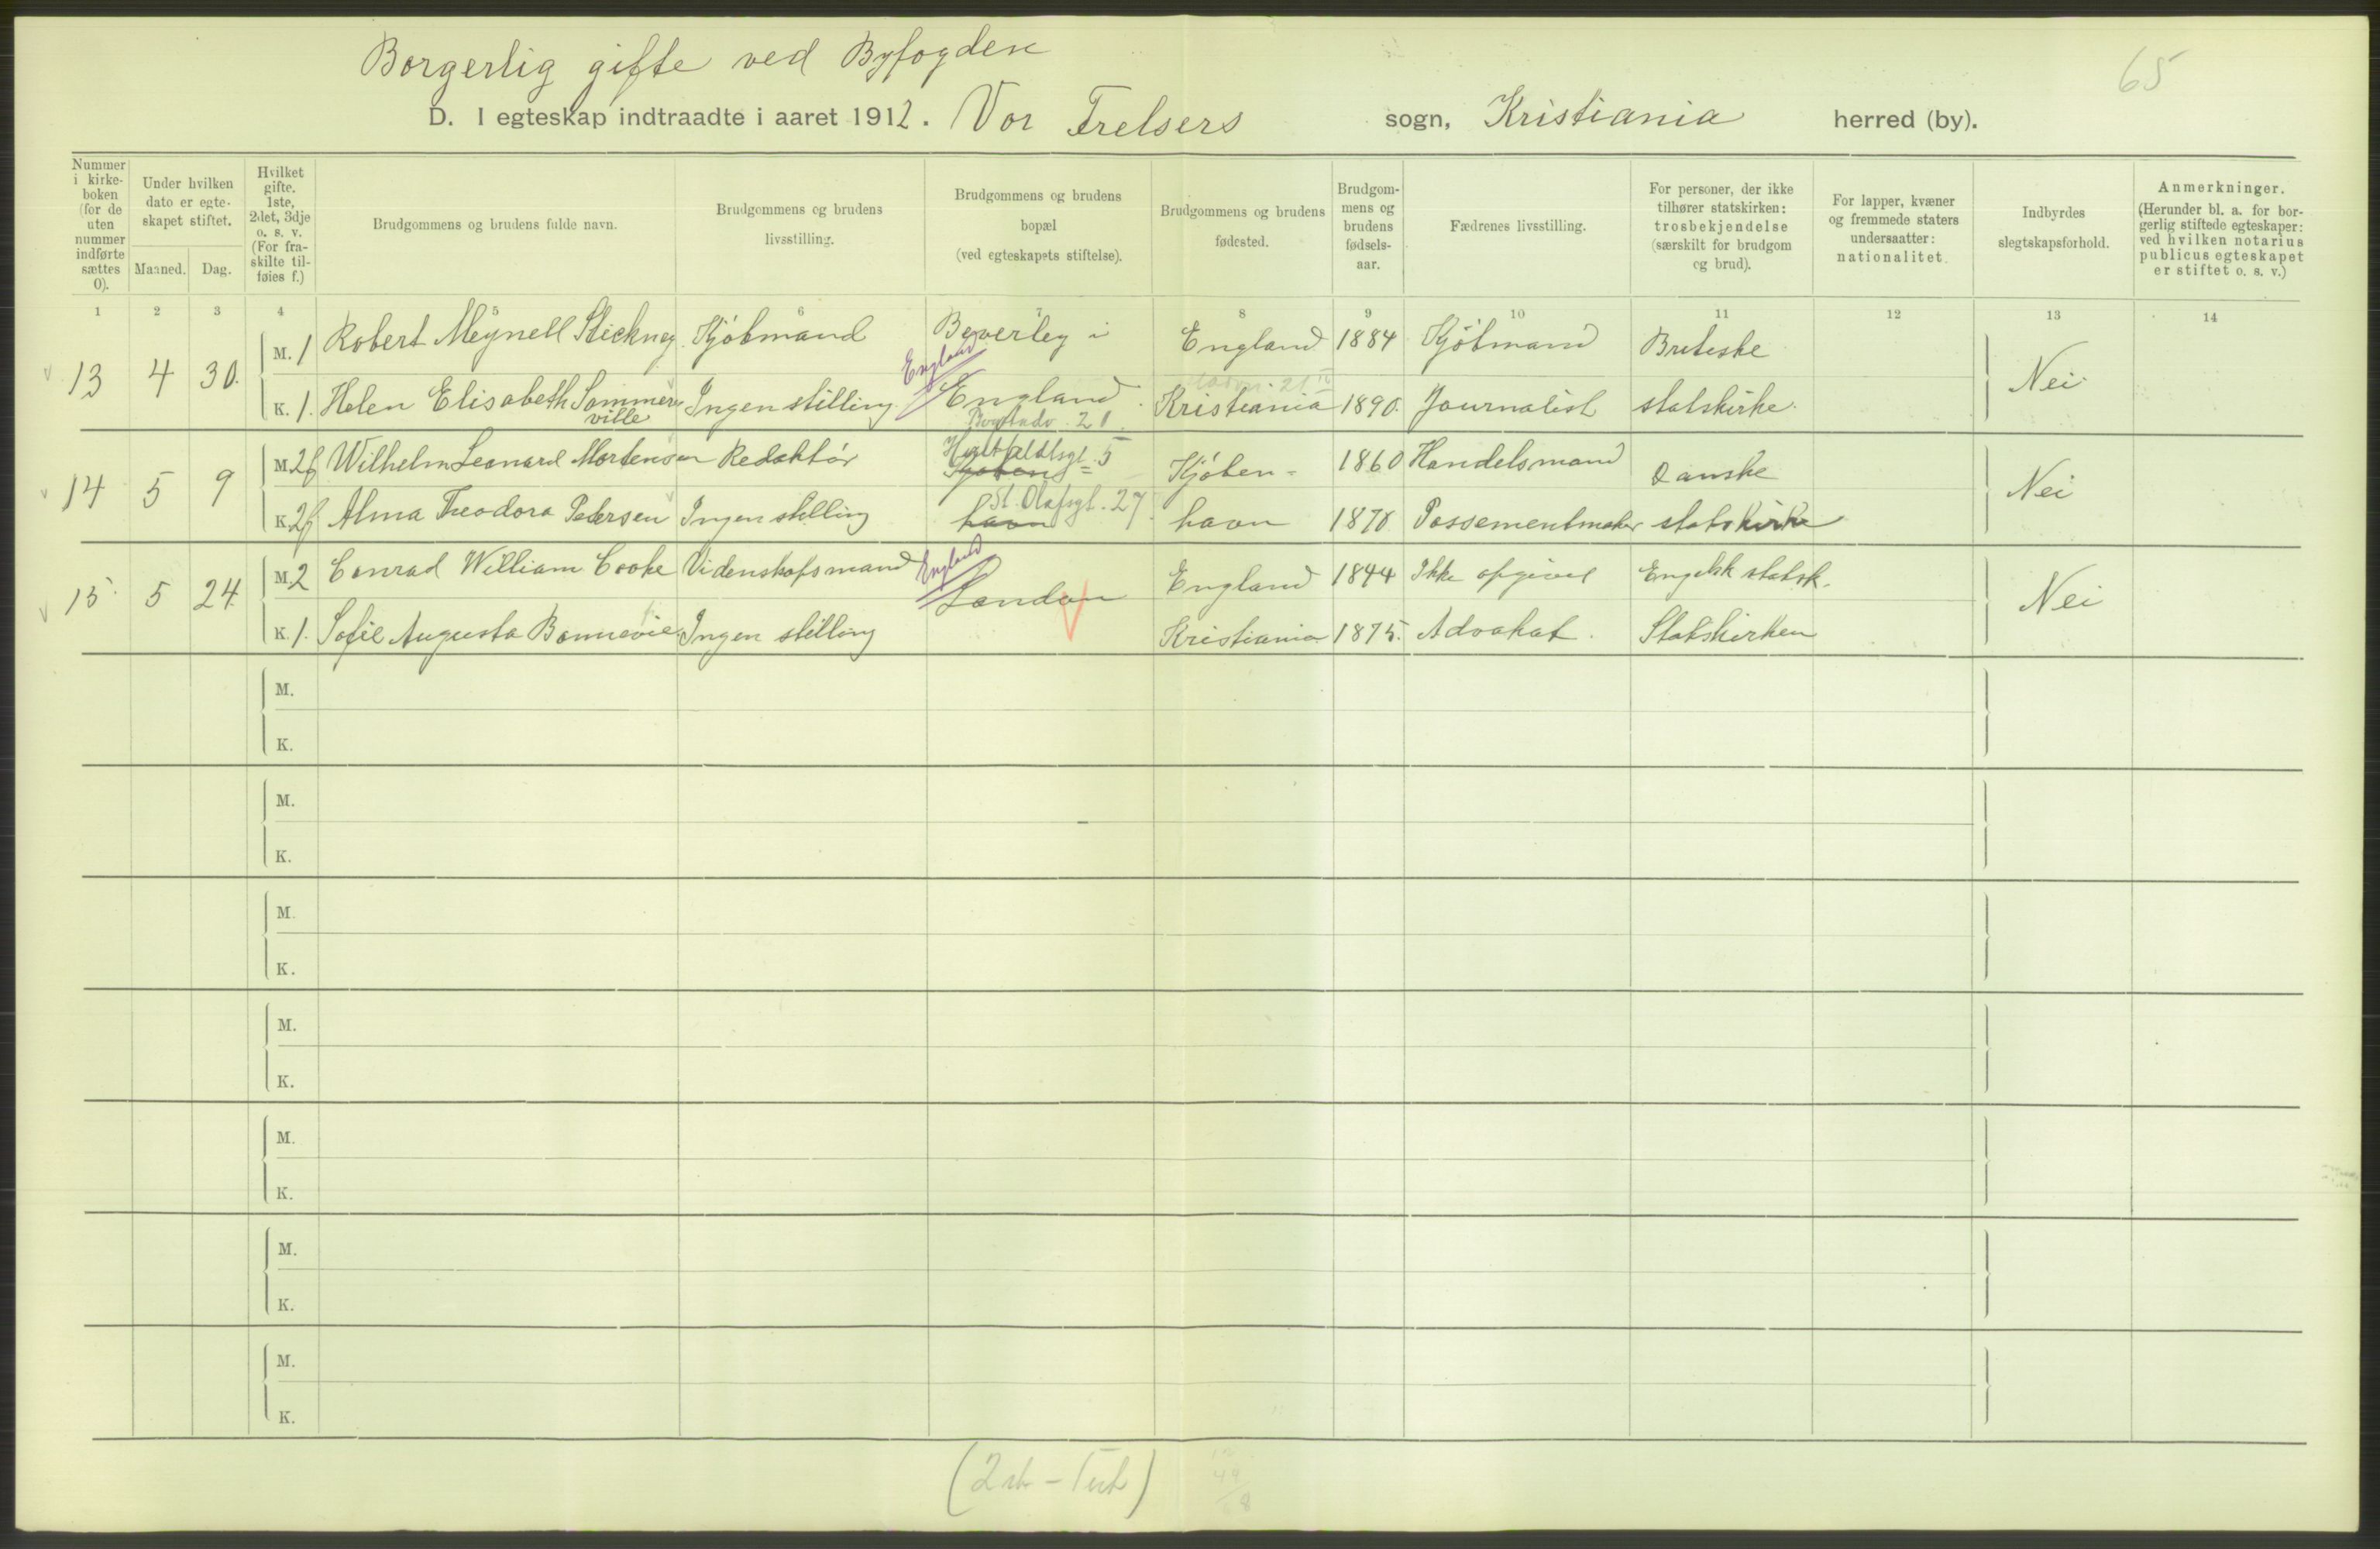 65
Borgerlig gifte ved Byfogden
D. I egteskap indtraadte i aaret 1912. Vor Frelsers sogn, Kristiania herred (by).
Nummer i kirkeboken (for de uten nummer indførte sættes 0).
Under hvilken dato er egteskapet stiftet.
Maaned. Dag.
Hvilket gifte. 1ste, 2det, 3dje o. s. v. (For fraskilte tilføies f.)
Brudgommens og brudens fulde navn.
Brudgommens og brudens livsstilling.
Brudgommens og brudens bopæl (ved egteskapets stiftelse).
Brudgommens og brudens fødested.
Brudgommens og brudens fødselsaar.
Fædrenes livsstilling.
For personer, der ikke tilhører statskirken: trosbekjendelse (særskilt for brudgom og brud).
For lapper, kvæner og fremmede staters undersaatter: nationalitet.
Indbyrdes slegtskapsforhold.
Anmerkninger. (Herunder bl. a. for borgerlig stiftede egteskaper: ved hvilken notarius publicus egteskapet er stiftet o. s. v.)
1 2 3 4 5 6 7 8 9 10 11 12 13 14
13 4 30. M. 1 Robert Meynell Stickney Kjøbmand Beverley i England 1884 Kjøbmand Briteske Nei
England
K. 1. Helen Elisabeth Sommerville Ingen stilling England Kristiania 1890. Journalist statskirke.
14 5 9 M. 2f Wilhelm Leonard Mortensen Redaktør Kjøben= Kjøben- 1860 Handelsmand Danske Nei
St. Olafsgt. 27
K. 2f Alma Theodora Petersen Ingen stilling havn havn 1878 Possementmaker statskirke
15 5 24. M. 2 Conrad William Cooke Videnskapsmand England London England 1844 Ikke opgivet Engelsk statsk. Nei
K. 1. Sofie Augusta Bonnevie Ingen stilling Kristiania 1875. Advokat. Statskirken
M.
K.
M.
K.
M.
K.
M.
K.
M.
K.
M.
K.
M.
K.